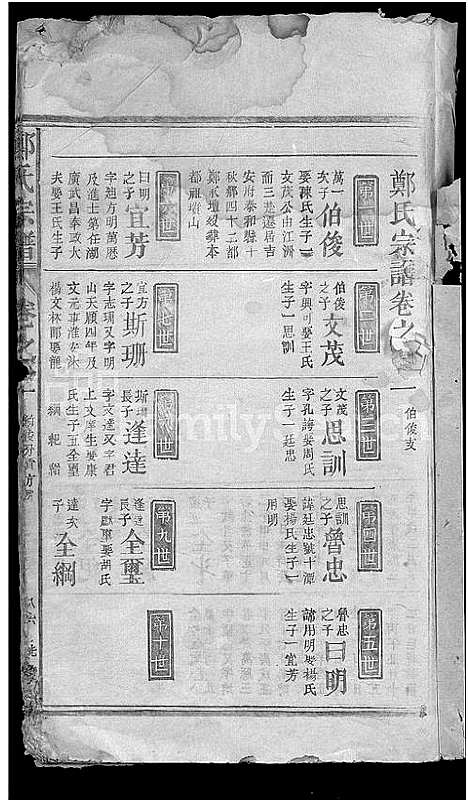 鄭氏宗譜卷之
一
伯俊支
第一世
萬一
次子
伯俊
娶陳氏生子一
文茂公由江濟
而三悲遷居吉
安府泰和縣十
秋鄉四十二都
鄭家壇歿葬本
都祖塔山
第二世
伯俊
之子
文茂
字興可娶王氏
生子一思訓
第三世
文茂
之子
思訓
字孔誨娶周氏
生子一廷忠
第四世
思訓
之子
魯忠
諱廷忠號十潭
娶楊氏生子一
用明
第五世
魯忠
之子
曰明
諱用明娶楊氏
生子一宜芳
第六世
曰明
之子
宜芳
字迪方明萬曆
及進士第在湖
廣武昌奉政大
夫娶王氏生子
第七世
宜方
之子
斯珊
字志珊又字明
山天順四年及
文元事淮
楊文林郎娶龍
第八世
斯珊
長子
逢達
字文達又字君
上文庠生娶康
氏生子五全璽
綱 紀
第九世
逢達
長子
全璽
字獻章娶胡氏
達次
子
全綱
第十世
鄭氏宗譜
卷之